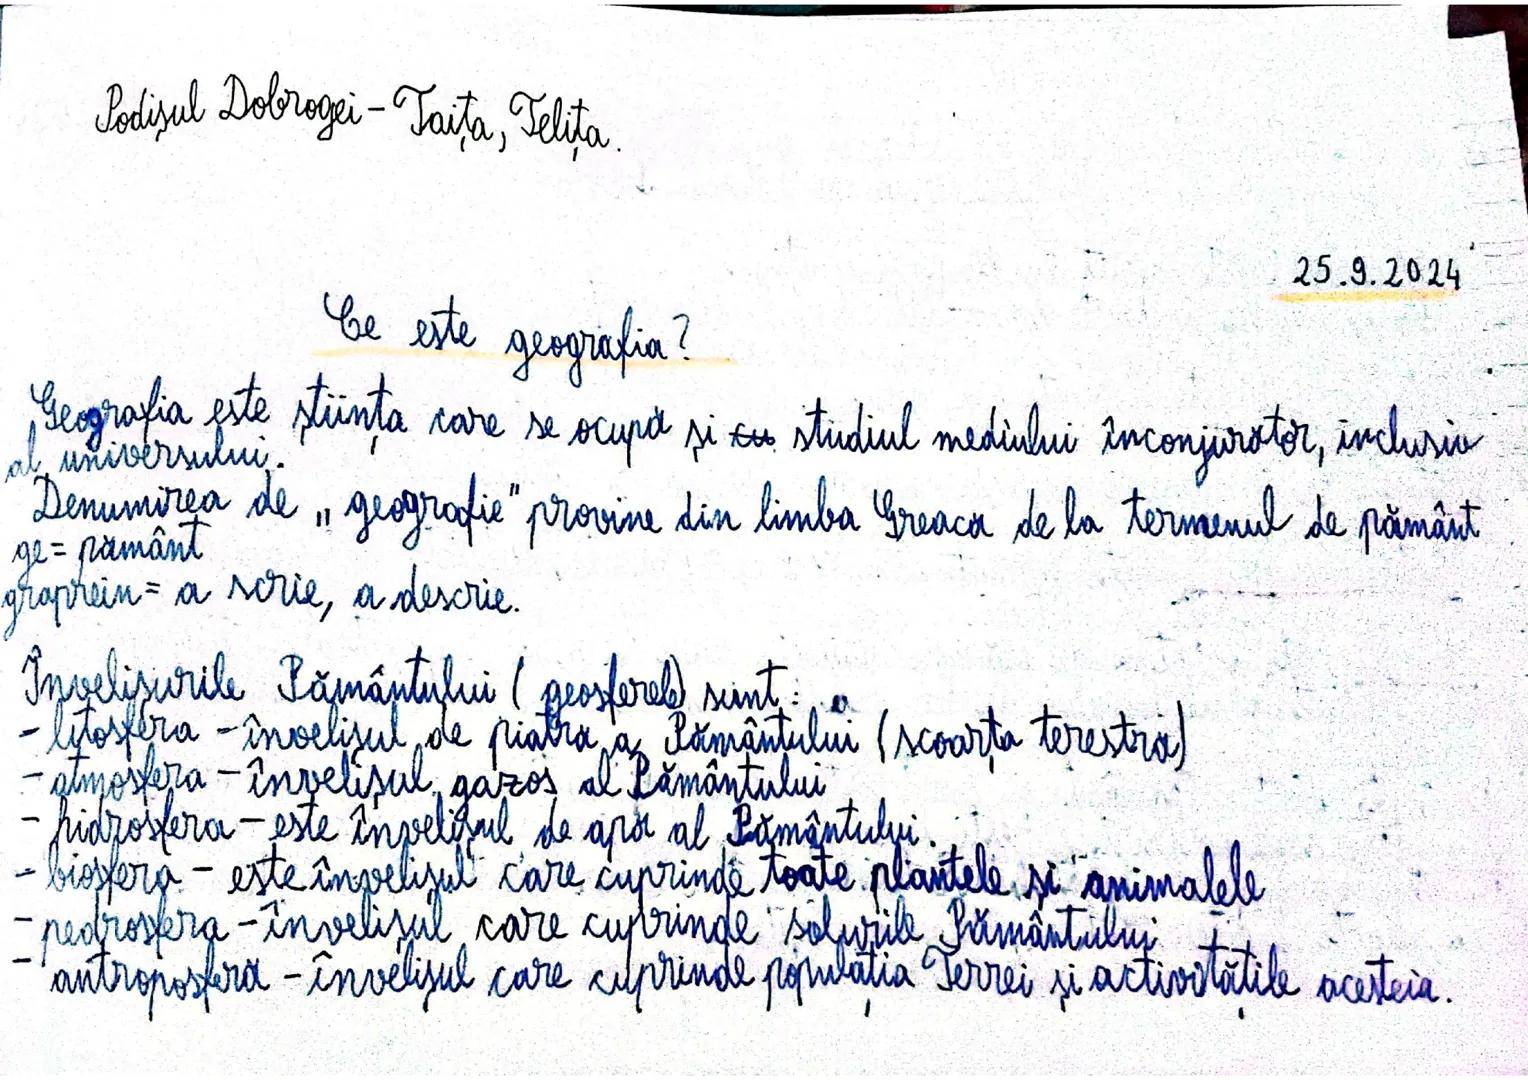 Podișul Dobrogei - Taița, Telița.
25.9.2024
Ce este geografia?
Geografia este știința care se ocupă și cu studiul mediului înconjurător, inclusiv
al universului.
Denumirea de „geografie" provine din limba Greacă de la termenul de pământ
ge = pământ
graphein = a scrie, a descrie.
Învelișurile Pământului (geosferele) sunt:
- litosfera - învelișul de piatră a Pământului (scoarța terestră)
- atmosfera - învelișul gazos al Pământului
- hidrosfera - este învelișul de apă al Pământului.
- biosfera - este învelișul care cuprinde toate plantele și animalele
- pedrosfera - învelișul care cuprinde solurile Pământului
- antroposferă - învelișul care cuprinde populația Terrei și activitățile acesteia.